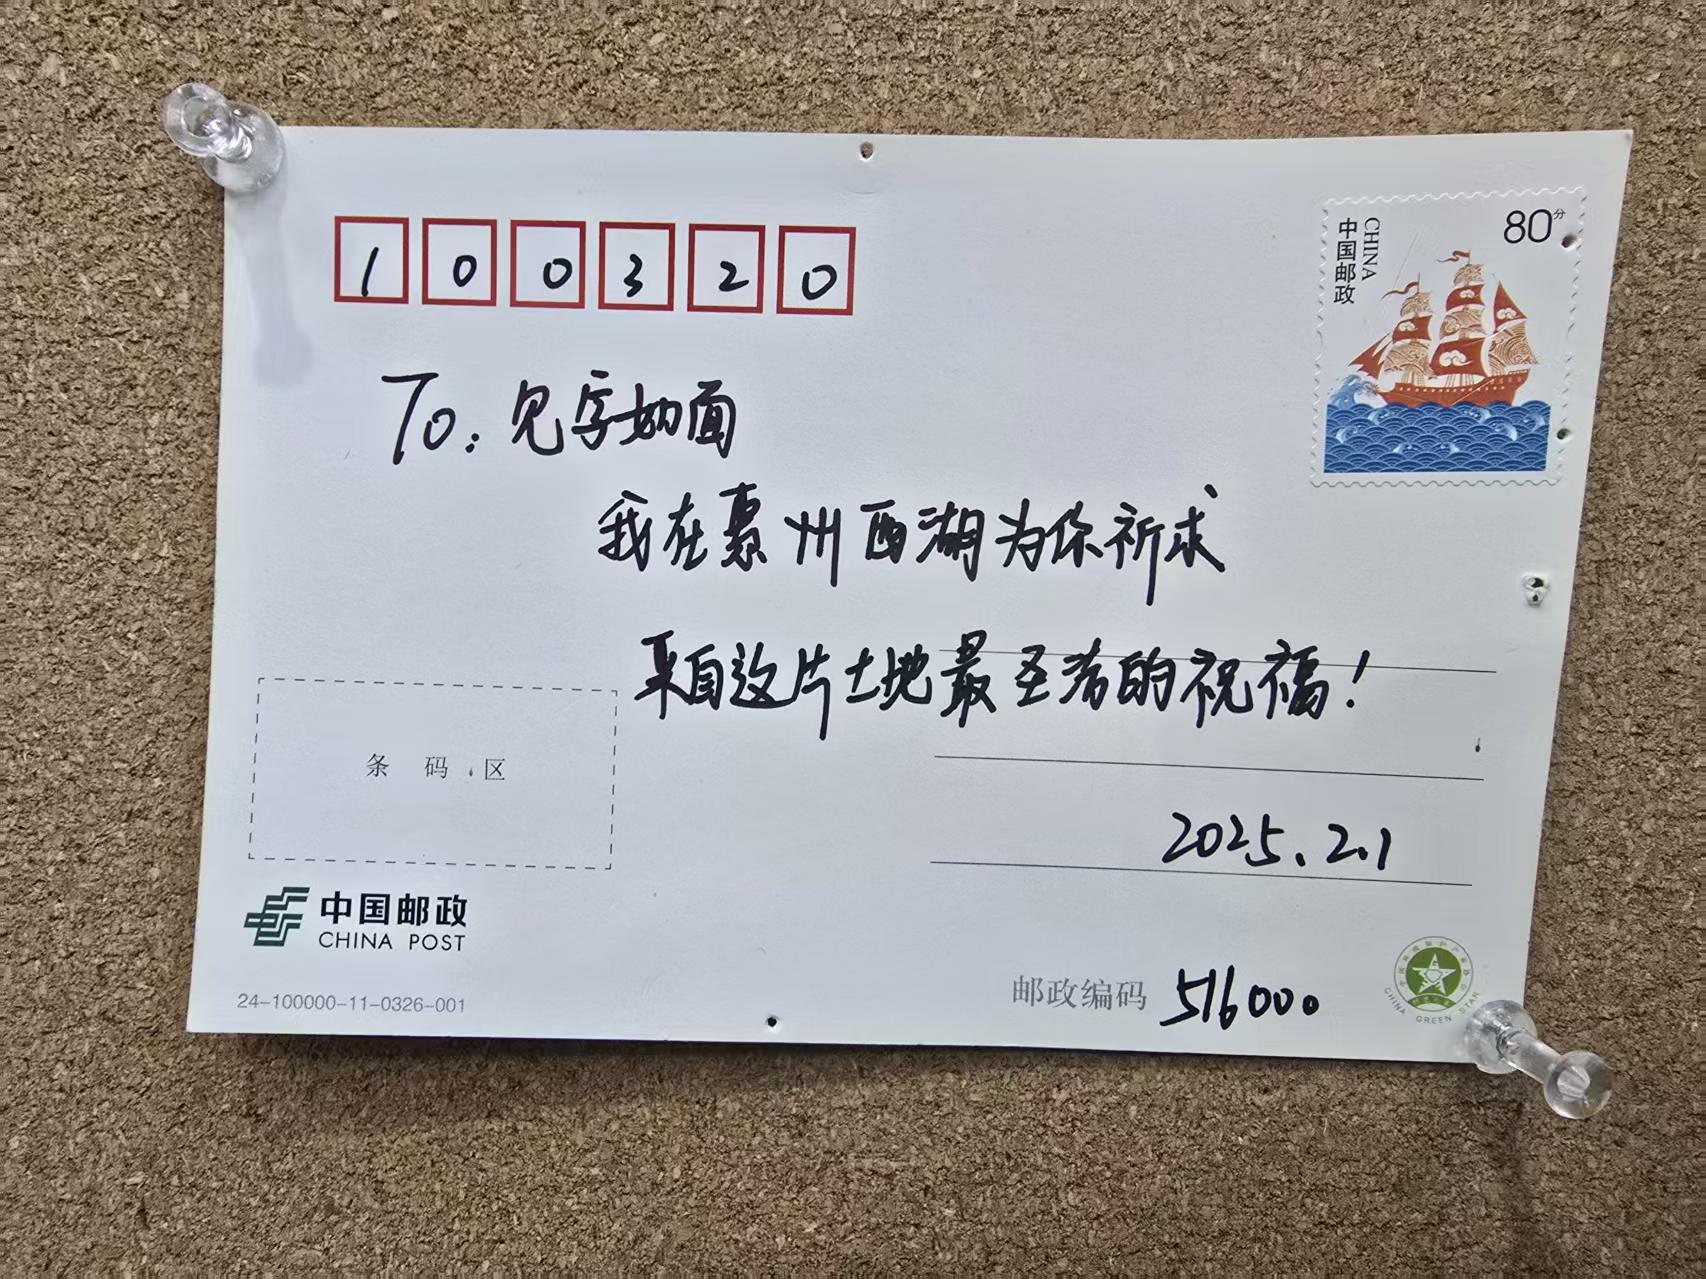 100320
80分
中国邮政
CHINA
To: 见字如面
我在惠州西湖为你祈求
来自这片土地最圣洁的祝福!
条码区
2025.2.1
中国邮政
CHINA POST
24-100000-11-0326-001
邮政编码 516000
CHINA GREEN STAR